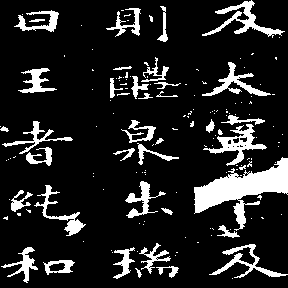 及太寧及
則醴泉出瑞
曰王者純和